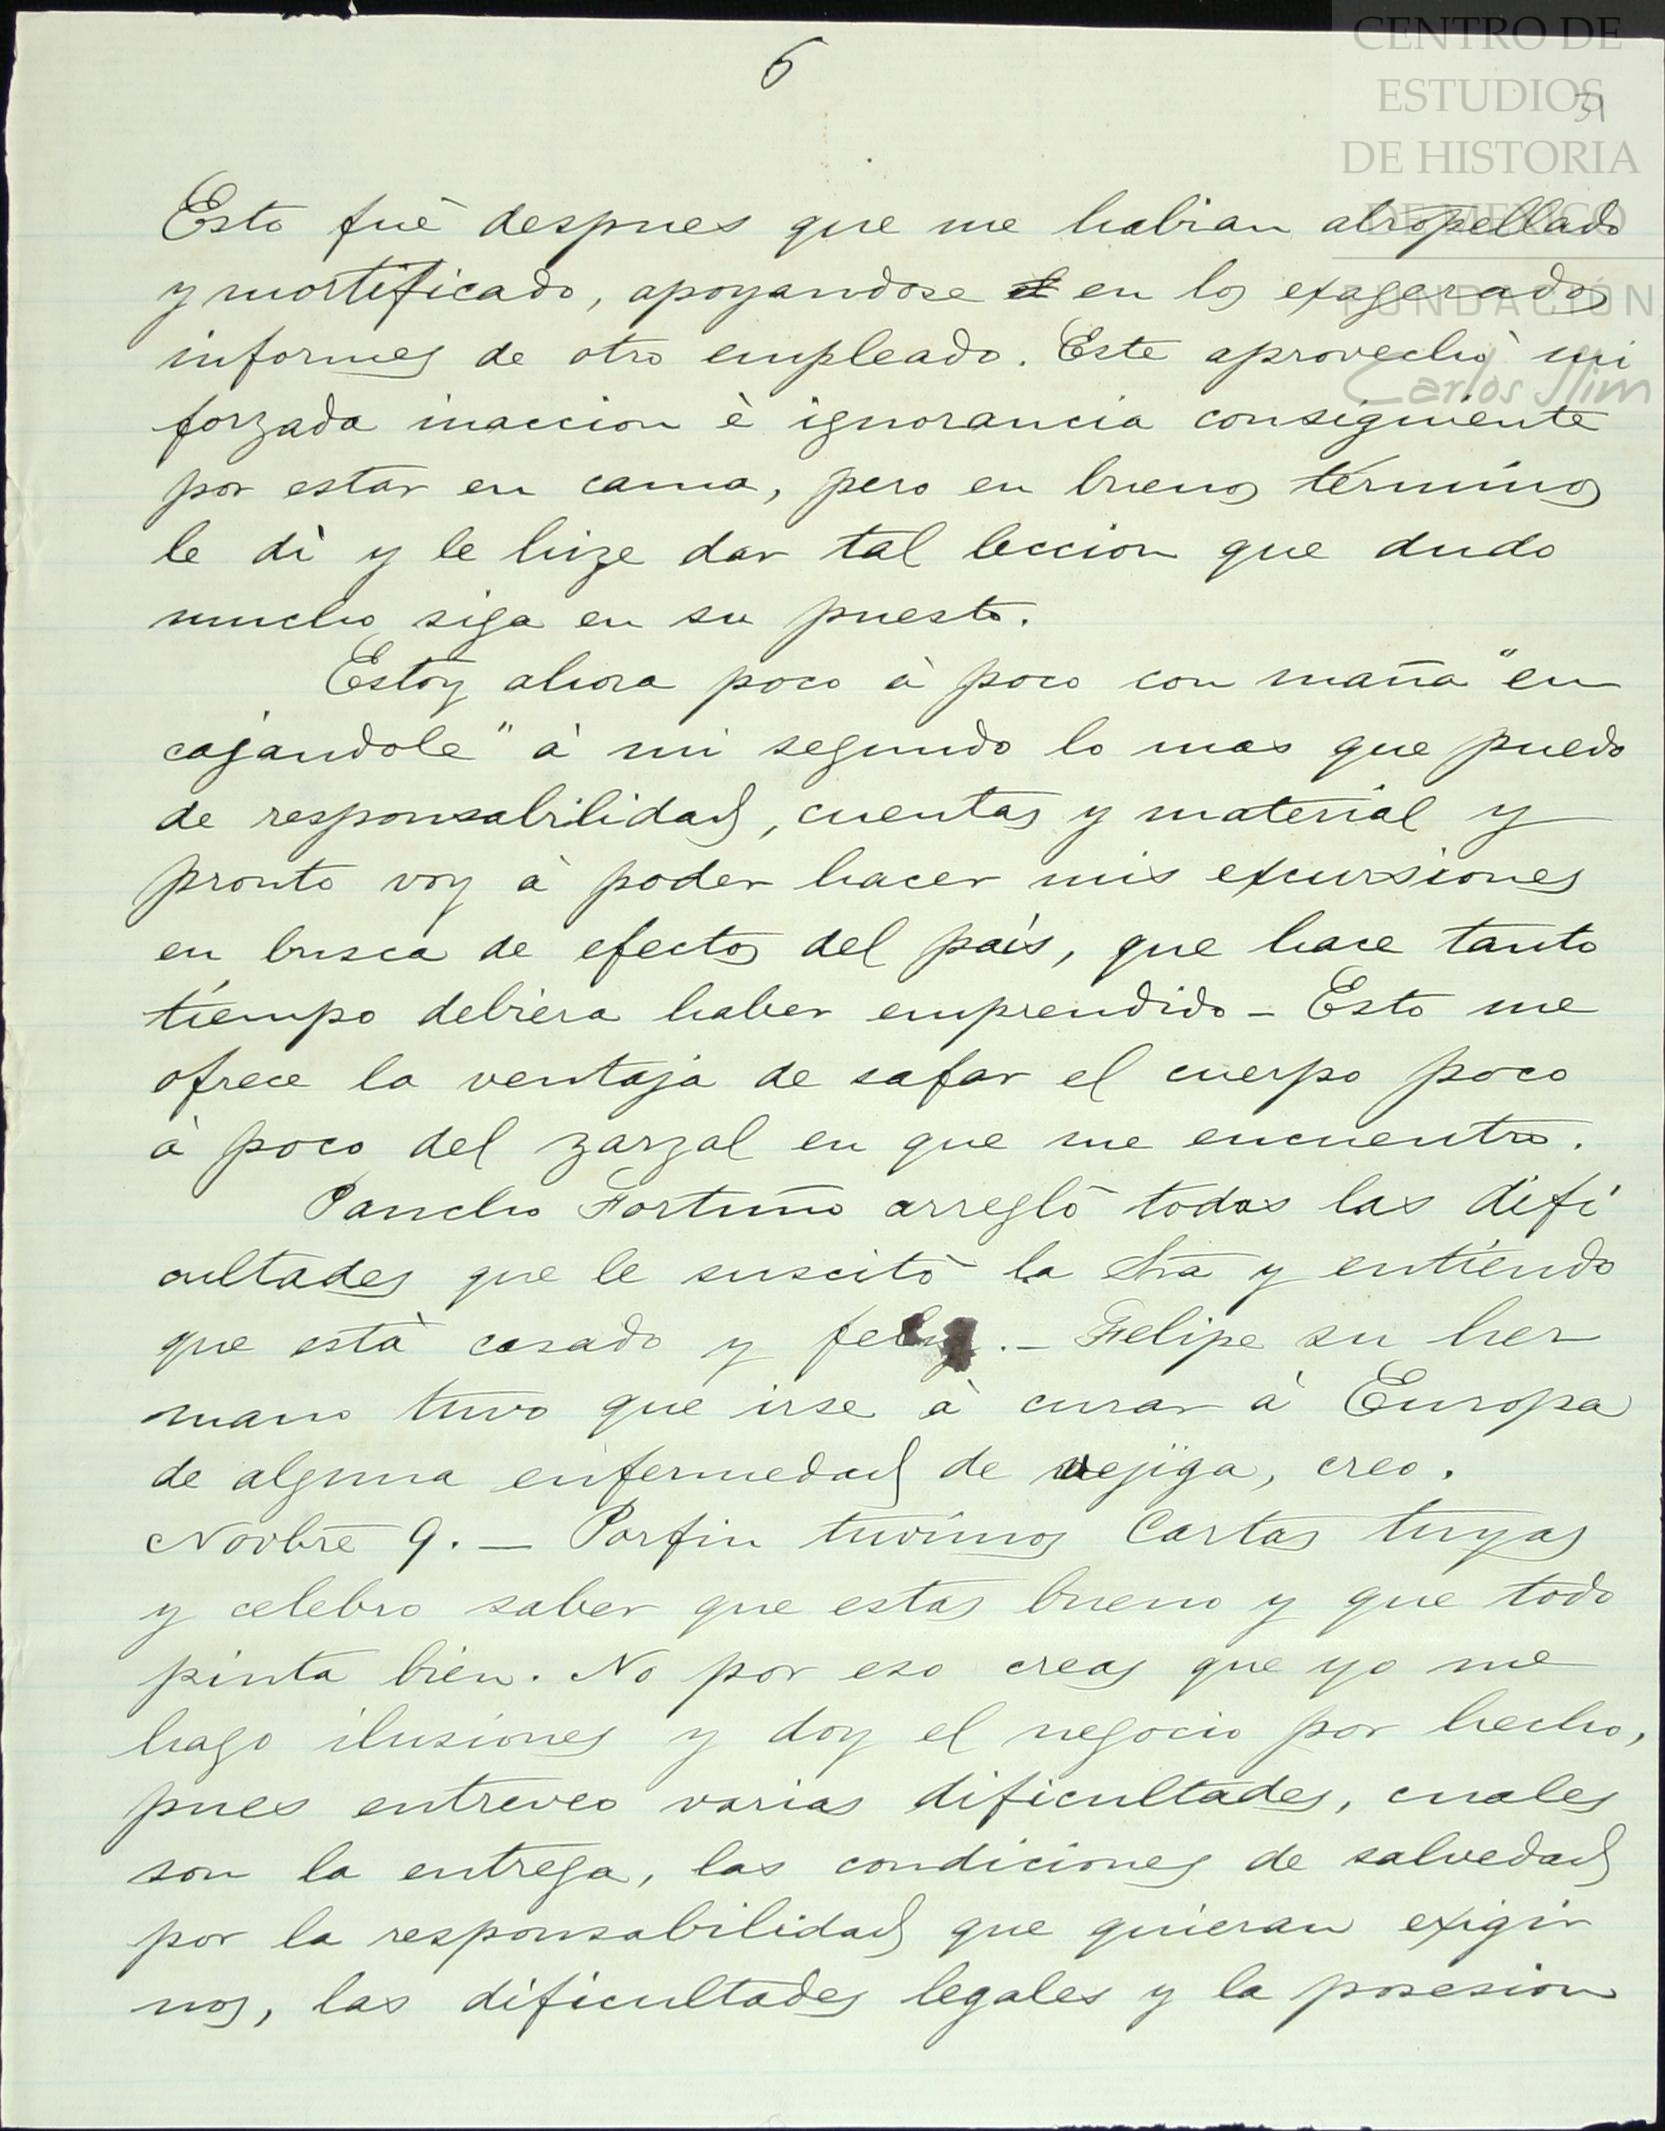 6
31
CENTRO DE
ESTUDIOS
DE HISTORIA
DE MÉXICO
FUNDACIÓN
Carlos Slim
Esto fuè despues que me habian atropellado
y mortificado, apoyandose en los exagerados
informes de otro empleado. Este aprovechò mi
forzada inaccion è ignorancia consiguiente
por estar en cama, pero en buenos términos
le dì y le hize dar tal leccion que dudo
mucho siga en su puesto.
Estoy ahora poco à poco con maña "en
cajàndole" à mi segundo lo mas que puedo
de responsabilidad, cuentas y material y
pronto voy à poder hacer mis excursiones
en busca de efectos del paìs, que hace tanto
tiempo debiera haber emprendido - Esto me
ofrece la ventaja de safar el cuerpo poco
à poco del zarzal en que me encuentro.
Pancho Fortuño arreglò todas las difi
cultades que le suscitò la Sra y entiendo
que està casado y feliz. - Felipe su her
mano tuvo que irse à curar à Europa
de alguna enfermedad de vejiga, creo.
Novbre 9. - Porfin tuvimos Cartas tuyas
y celebro saber que estas bueno y que todo
pinta bien. No por eso creas que yo me
hago ilusiones y doy el negocio por hecho,
pues entreveo varias dificultades, cuales
son la entrega, las condiciones de salvedad
por la responsabilidad que quieran exigir
nos, las dificultades legales y la posesion